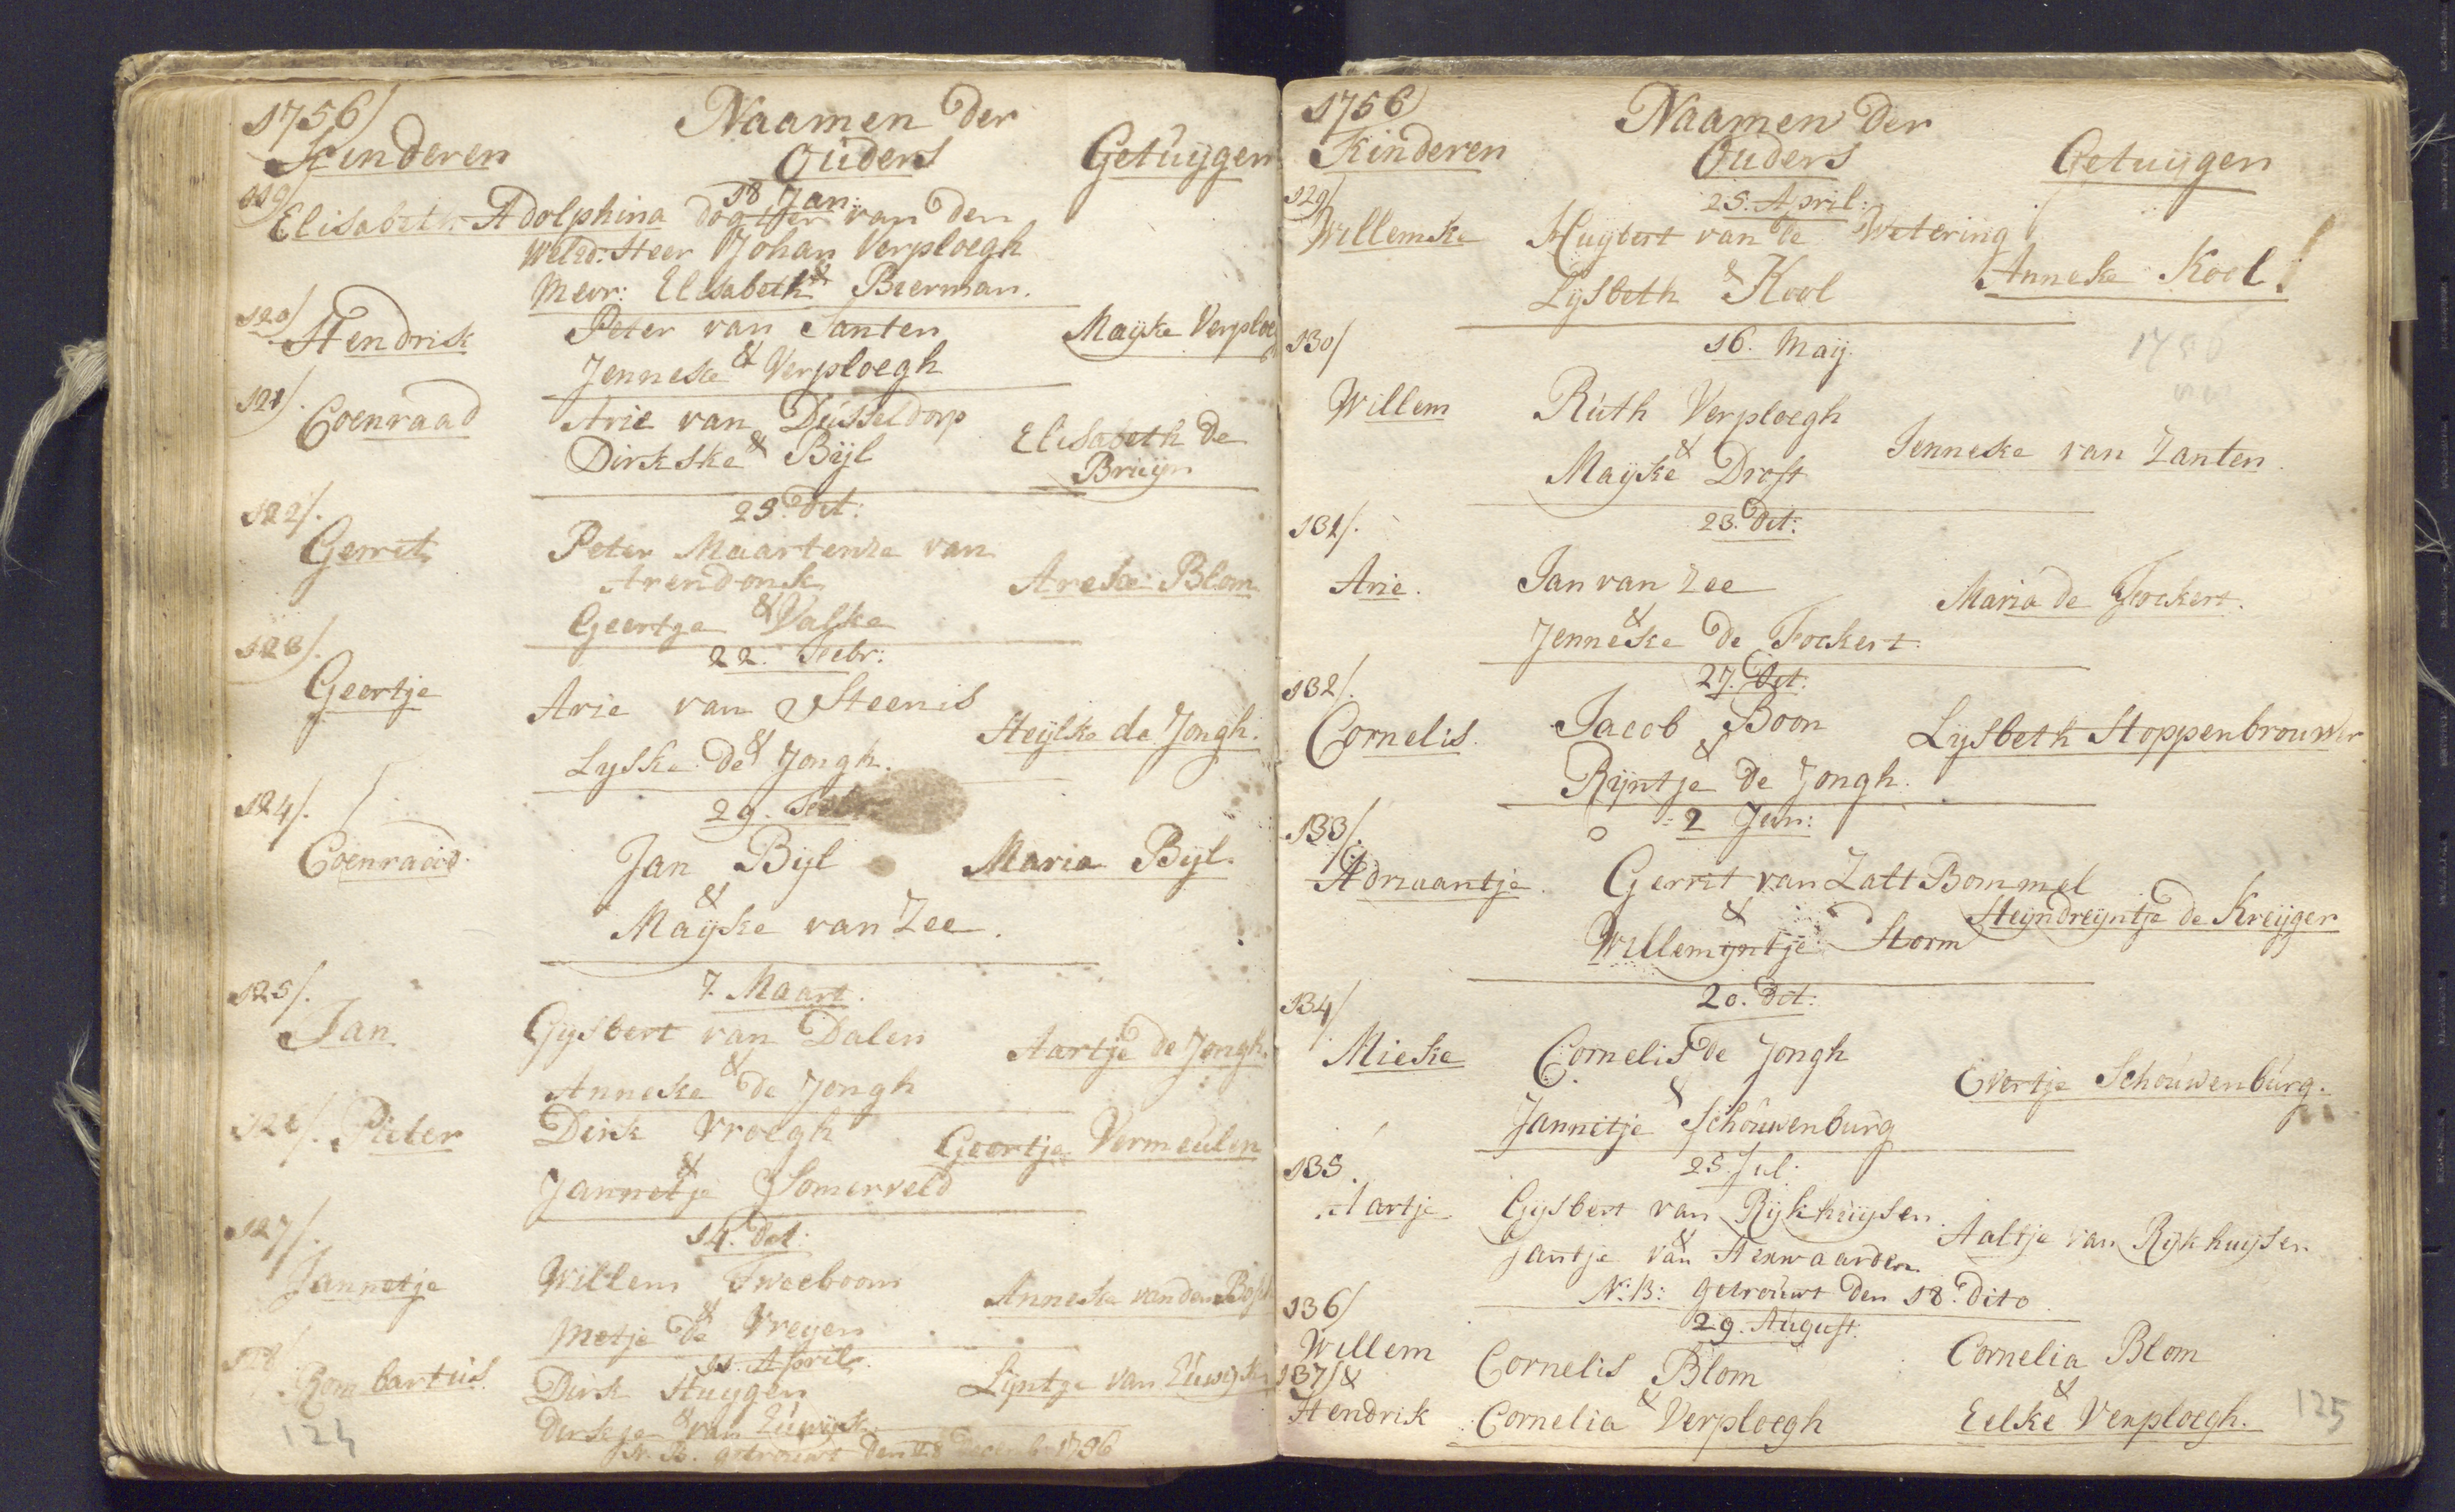 1756/
Naamen der
Kinderen Ouders Getuijgen
18 Jan:
119/
Elisabeth Adolphina dogtter van den
Weled: Heer Johan Verploegh
&
Mevr: Elisabeth Bierman.
120/
Hendrik Peter van Santen Maijke Verploeg
&
Jenneke Verploegh
121/.
Coenraad Arie van Dusseldorp Elisabeth de
& Bruijn
Dirkske Bijl
122/. 25. dit:
Gerrit Peter Maartense van
Arendonk Areke Blom
&
Geertge Valke
123/. 22. Febr:
Geertje Arie van Steenis Heijlke de Jongh.
&
Lyske de Jongh.
124/. 29. Febr:
Coenraad. Jan Bijl Maria Bijl.
&
Maijke van Zee.
125/. 7. Maart.
Jan Gijsbert van Dalen Aartje de Jongh.
&
Anneke de Jongh
126/. Pieter Dirk Vroegh Geertje Vermeulen
&
Jannetje Somerveld
127/. 14. dit:
Jannetje Willem Tweeboom Anneke van den Bosch
&
Metje de Vreyen
128/. 11. April.
Rombartus Dirk Huygen Lijntge van Euwijk
&
Derkje van Euwijk
N. B. getrouwt den
124
1756/
Naamen der
Kinderen Ouders Getuijgen
129/ 25. April:
Willemke Huijbert van de Wetering Anneke Kool
&
Lijsbeth Kool
130/ 16. Maij.
Willem Ruth Verploegh Jenneke van Zanten.
&
Maijke Drost
131/. 23. dit:
Arie. Jan van Zee Maria de Fockert.
&
Jenneke de Fockert.
132/. 27. dit:
Cornelis. Jacob Boon Lijsbeth Stoppenbrouwer
&
Rijntje de Jongh.
133/. 2 Jun:
Adriaantje. Gerrit van Zalt Bommel Heijndreijntje de Kreijger
&
Willemijntje Storm
134/ 20. dit:
Mieke Cornelis de Jongh Evertje Schouwenburg.
&
Jannitje Schouwenburg
135. 25. Jul:
Aartje Gijsbert van Rijkhuijsen. Aaltje van Rijkhuijsen
&
Jantje van Renwaarden
N: B: getrouwt den 18. dito
136/ 29. August:
Willem Cornelis Blom Cornelia Blom
137/ & & &
Hendrik Cornelia Verploegh Eelke Verploegh.
125